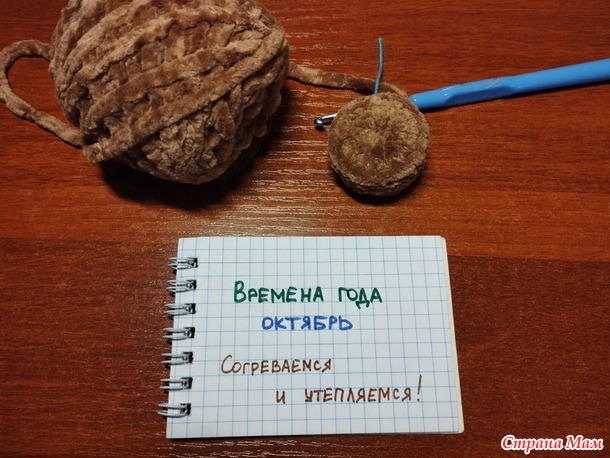 Времена года
октябрь
Согреваемся
и утепляемся!
Страна Мам